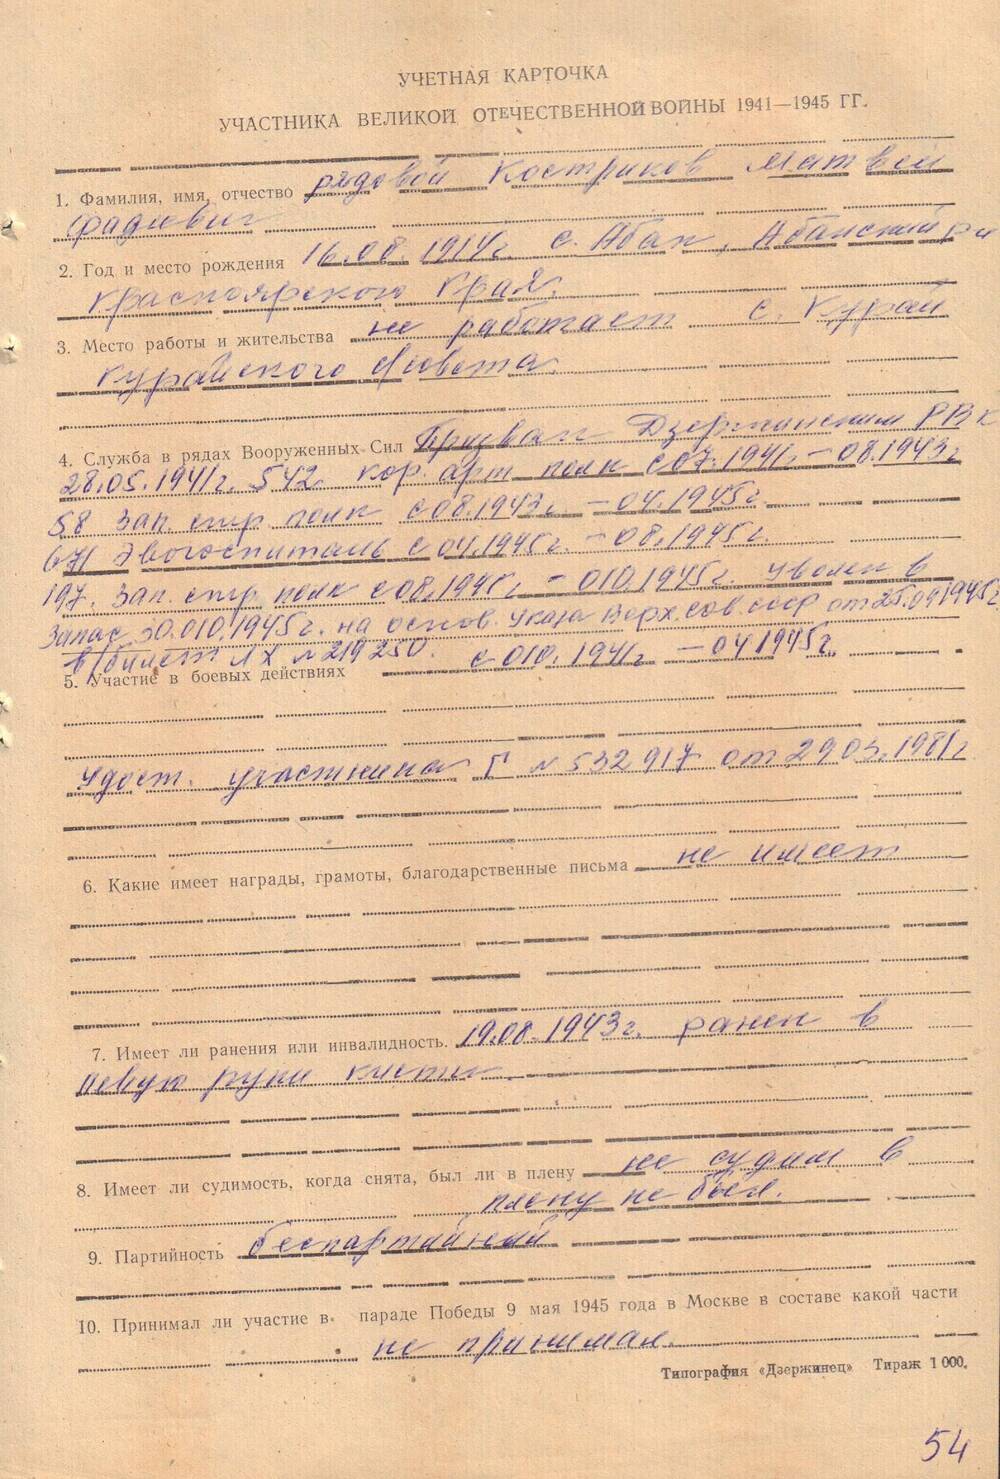 УЧЕТНАЯ КАРТОЧКА
УЧАСТНИКА ВЕЛИКОЙ ОТЕЧЕСТВЕННОЙ ВОЙНЫ 1941—1945 ГГ.
1. Фамилия, имя, отчество рядовой Костриков Матвей
Фадневич
2. Год и место рождения 16.08.1914г. с. Абан, Абанский р-н
Красноярского края.
3. Место работы и жительства не работает с. Курай
Курайского с/совета.
4. Служба в рядах Вооруженных Сил Призван Дзержинским РВК
28.05.1941г. 542 кор. арт полк с 07.1941г – 08.1943г
58 зап. стр. полк с 08.1943г – 04.1945г.
671 Эвогоспиталь с 04.1945г. – 08.1945г.
197. зап. стр. полк с 08.1945г – 010.1945г. уволен в
запас 30.010.1945г. на основ. Указа Верх. сов. ссср от 25.09.1945г.
в/билет ЛХ № 219250.
5. Участие в боевых действиях с 010.1941г – 04 1945г.
Удост. участника Г № 532917 от 29.03.1981г
6. Какие имеет награды, грамоты, благодарственные письма не имеет
7. Имеет ли ранения или инвалидность. 19.08.1943г. ранен в
левую руки кисти
8. Имеет ли судимость, когда снята, был ли в плену не судим в
плену не был.
9. Партийность беспартийный
10. Принимал ли участие в параде Победы 9 мая 1945 года в Москве в составе какой части
не принимал.
Типография «Дзержинец» Тираж 1 000.
54